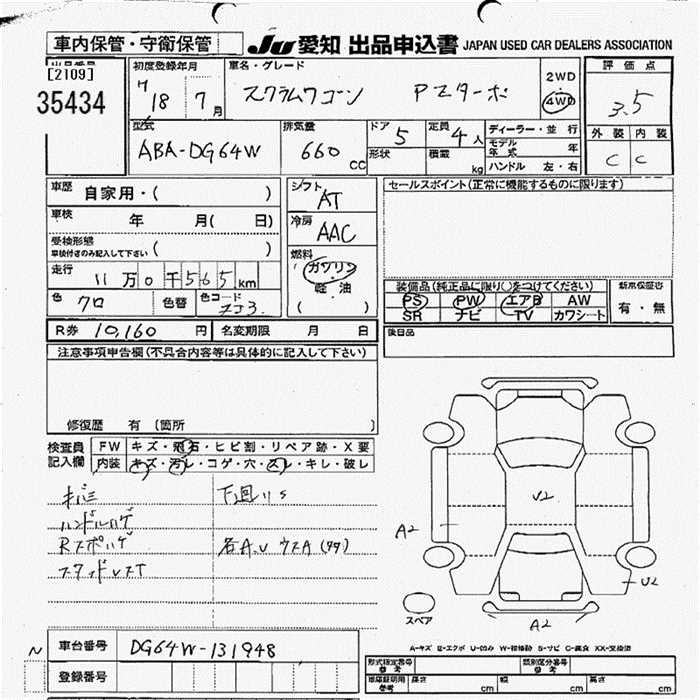 車内保管・守衛保管 JU 愛知 出品申込書 JAPAN USED CAR DEALERS ASSOCIATION
[2109]
35434
初度登録年月 車名・グレード 2WD 評価点
H18 7月 スクラムワゴン PZターボ 4WD 3.5
外装 内装
C C
型式 排気量 ドア 定員 ディーラー・並行
ABA-DG64W 660cc 5 4人 モデル年式 年
形状 積載 kg ハンドル 左・右
車歴 自家用・( ) シフト AT セールスポイント(正常に機能するものに限ります)
車検 年 月( 日) 冷房 AAC
受検形態 車検付きのみ記入して下さい ( )
燃料 ガソリン・軽油 ( )
走行 11万0千565km
色 クロ 色替 色コード ZJ3
装備品(純正品に限り○をつけてください) 新車保証書
PS PW エアB AW 有・無
SR ナビ TV カワシート
R券 10,160円 名変期限 月 日 後日品
注意事項申告欄(不具合内容等は具体的に記入して下さい)
修復歴 有 (箇所 )
検査員記入欄 FW キズ・飛石・ヒビ割・リペア跡・X要
内装 キズ・汚レ・コゲ・穴・スレ・キレ・破レ
下回りS
ハンドルハゲ
Rスポハゲ 各A.U ウスA
U2
A2
U2
A2
スペア
A-キズ E-エクボ U-凹み W-補修跡 S-サビ C-腐食 XX-交換済
N 車台番号 DG64W-131948
登録番号
形式指定番号 参考 類別区分番号 参考
車庫証明用 参考 長さ cm 幅 cm 高さ cm